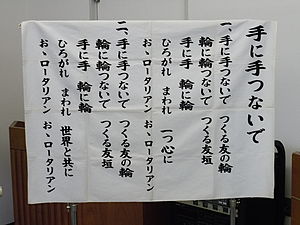 手に手つないで
一、手に手つないで つくる友の輪
輪に輪つないで つくる友垣
手に手 輪に輪
ひろがれ まわれ 一つ心に
おゝロータリアン おゝロータリアン
二、手に手つないで つくる友の輪
輪に輪つないで つくる友垣
手に手 輪に輪
ひろがれ まわれ 世界と共に
おゝロータリアン おゝロータリアン